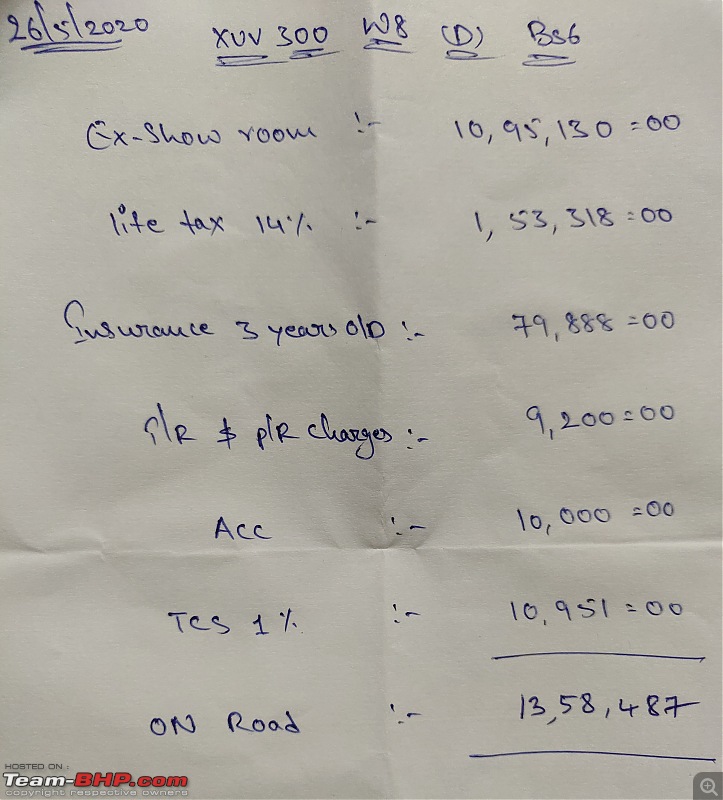 26/5/2020 XUV 300 W8 (D) BS6
Ex-Show room :- 10,95,130=00
life tax 14% :- 1,53,318=00
Insurance 3 years O/D :- 79,888=00
T/R & P/R charges :- 9,200=00
Acc :- 10,000=00
TCS 1% :- 10,951=00
ON Road :- 13,58,487
HOSTED ON :
Team-BHP.com
copyright respective owners